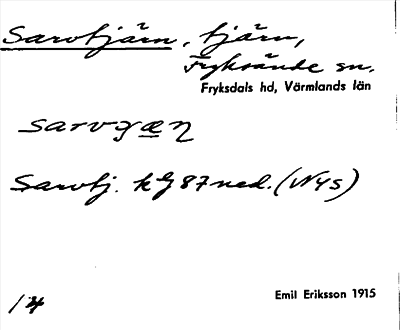 Sarvtjärn, tjärn,
Fryksände sn.
Fryksdals hd, Värmlands län
Sarvtj. kg 87 ned. (Nys)
14
Emil Eriksson 1915